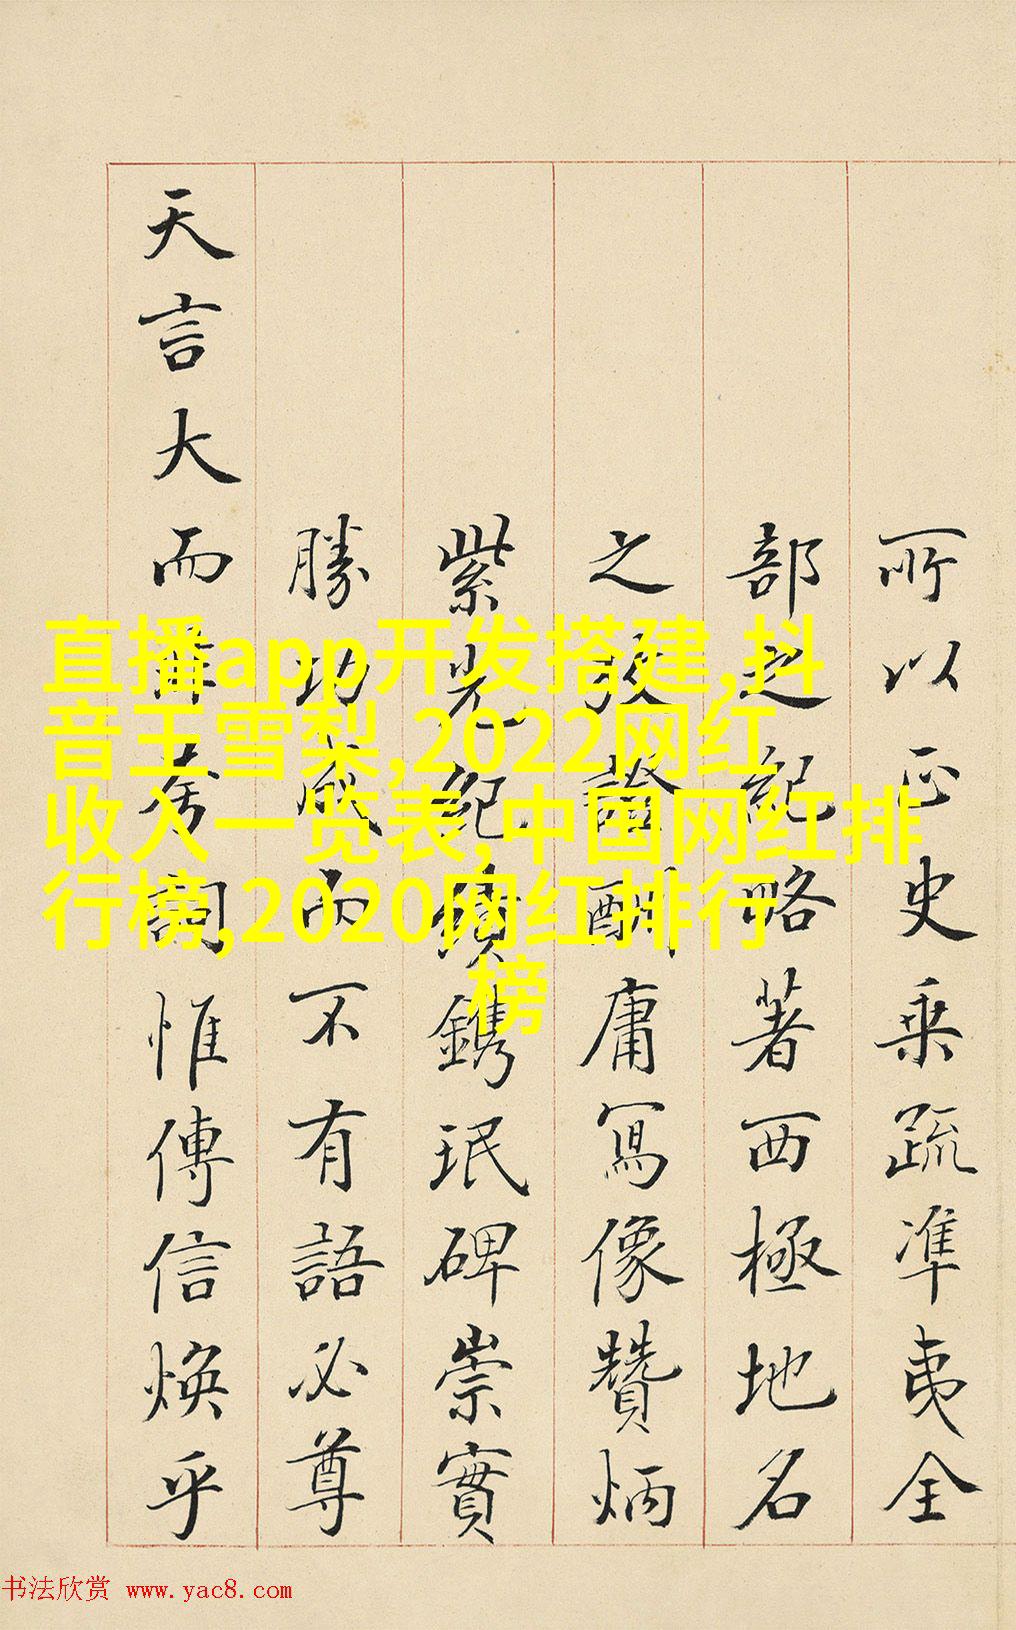 所以正史乘疏準夷全
部之紀略著西極地名
之攷證酬庸寫像贊炳
紫光紀績鐫珉碑崇實
勝功成而不有語必尊
天言大而夸詞惟傳信煥乎
直播app开发搭建,抖
音王雪梨,2022网红
收入一览表,中国网红排
行榜,2020网红排行
榜
书法欣赏 www.yac8.com